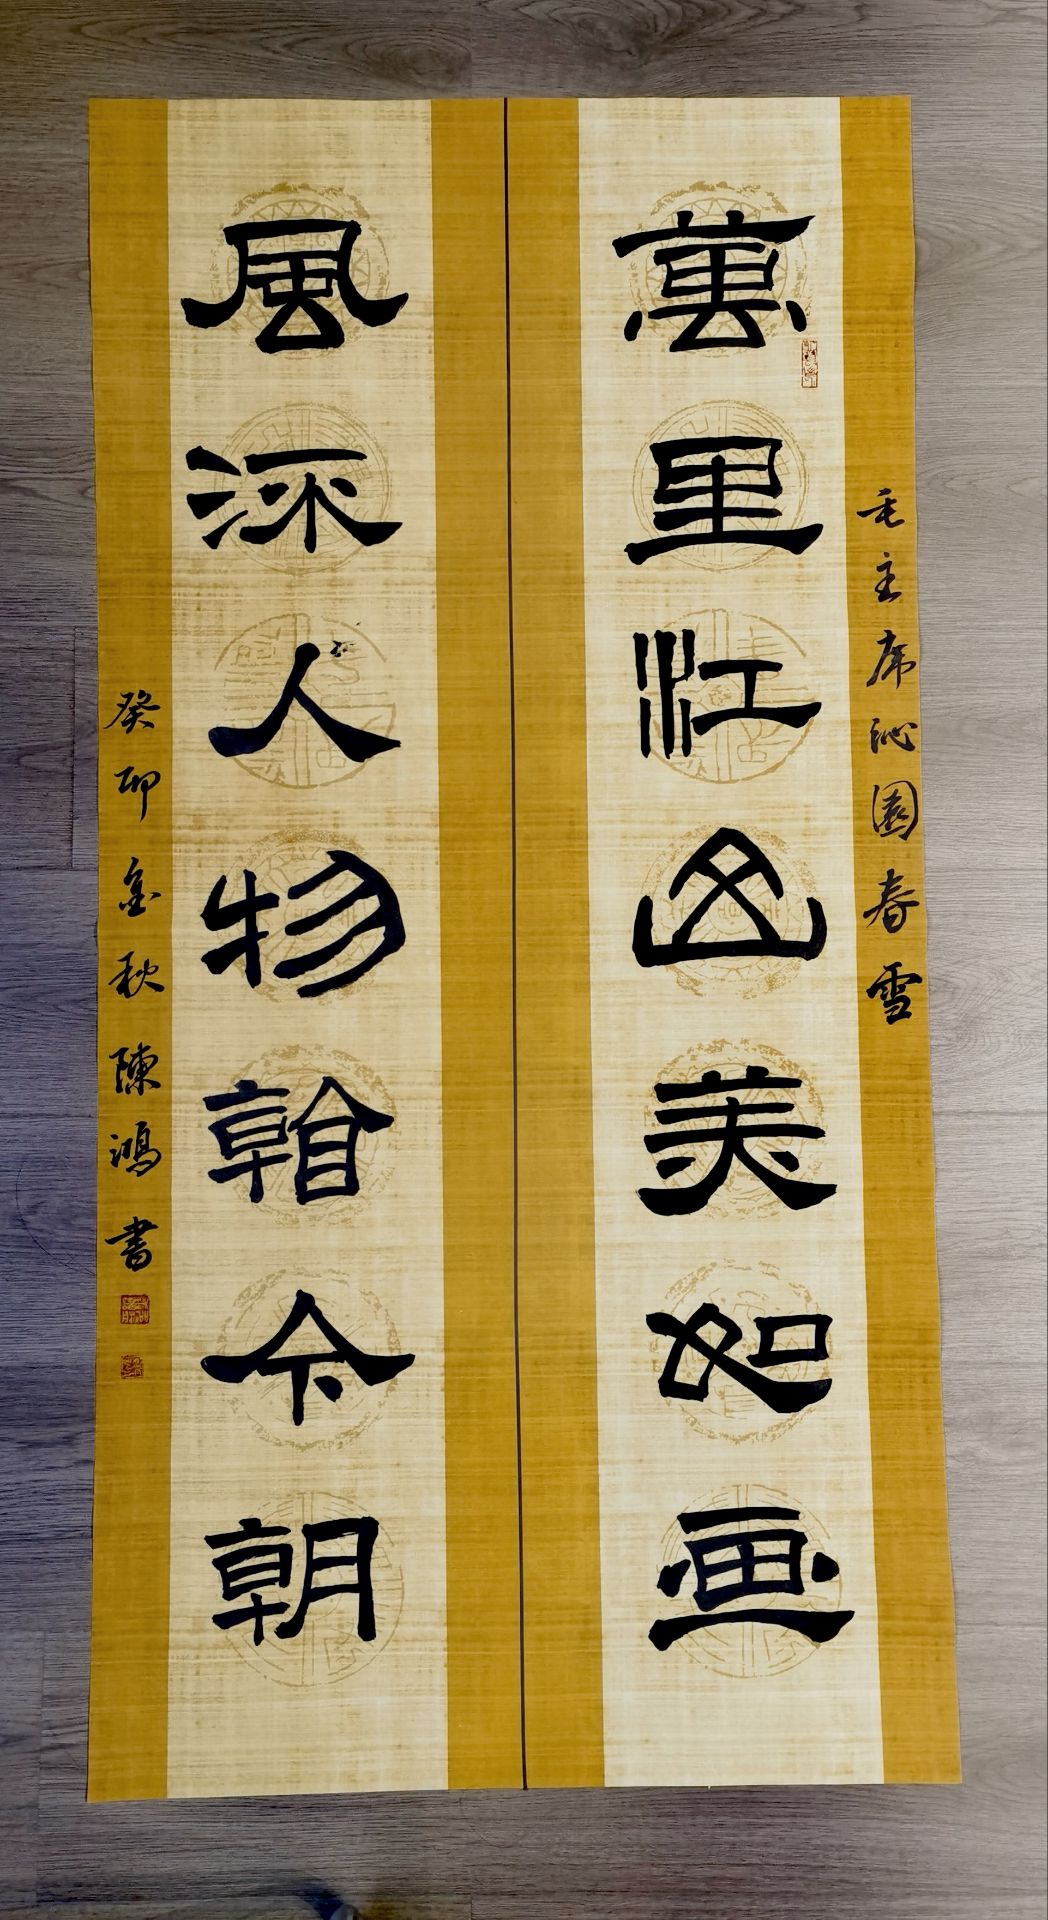 毛主席沁園春雪
萬里江山美如画
風流人物看今朝
癸卯金秋陳鴻書